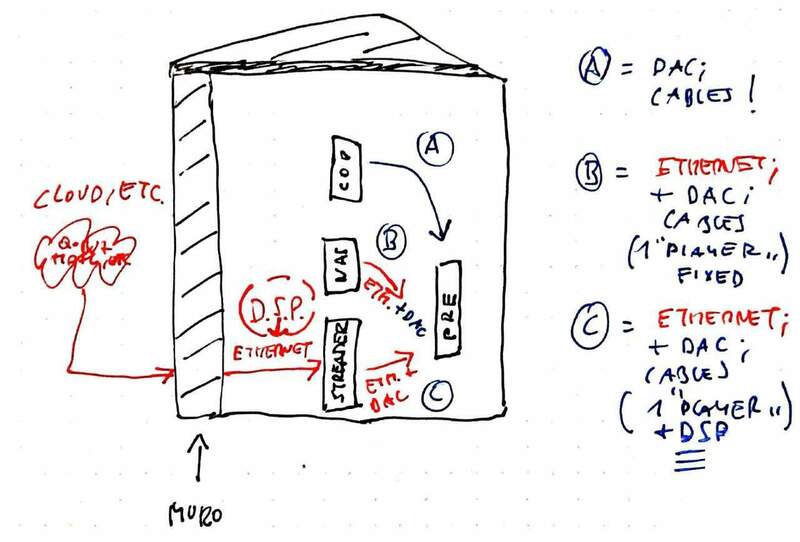 CLOUD, ETC.
CDP
A
B
NAS
ETH.
+DAC
D.S.P.
ETHERNET
STREAMER
ETH. +
DAC
C
PRE
MURO
A = DAC;
CABLES!
B = ETHERNET;
+ DAC;
CABLES
(1 "PLAYER")
FIXED
C = ETHERNET;
+ DAC;
CABLES
(1 "PLAYER")
+DSP